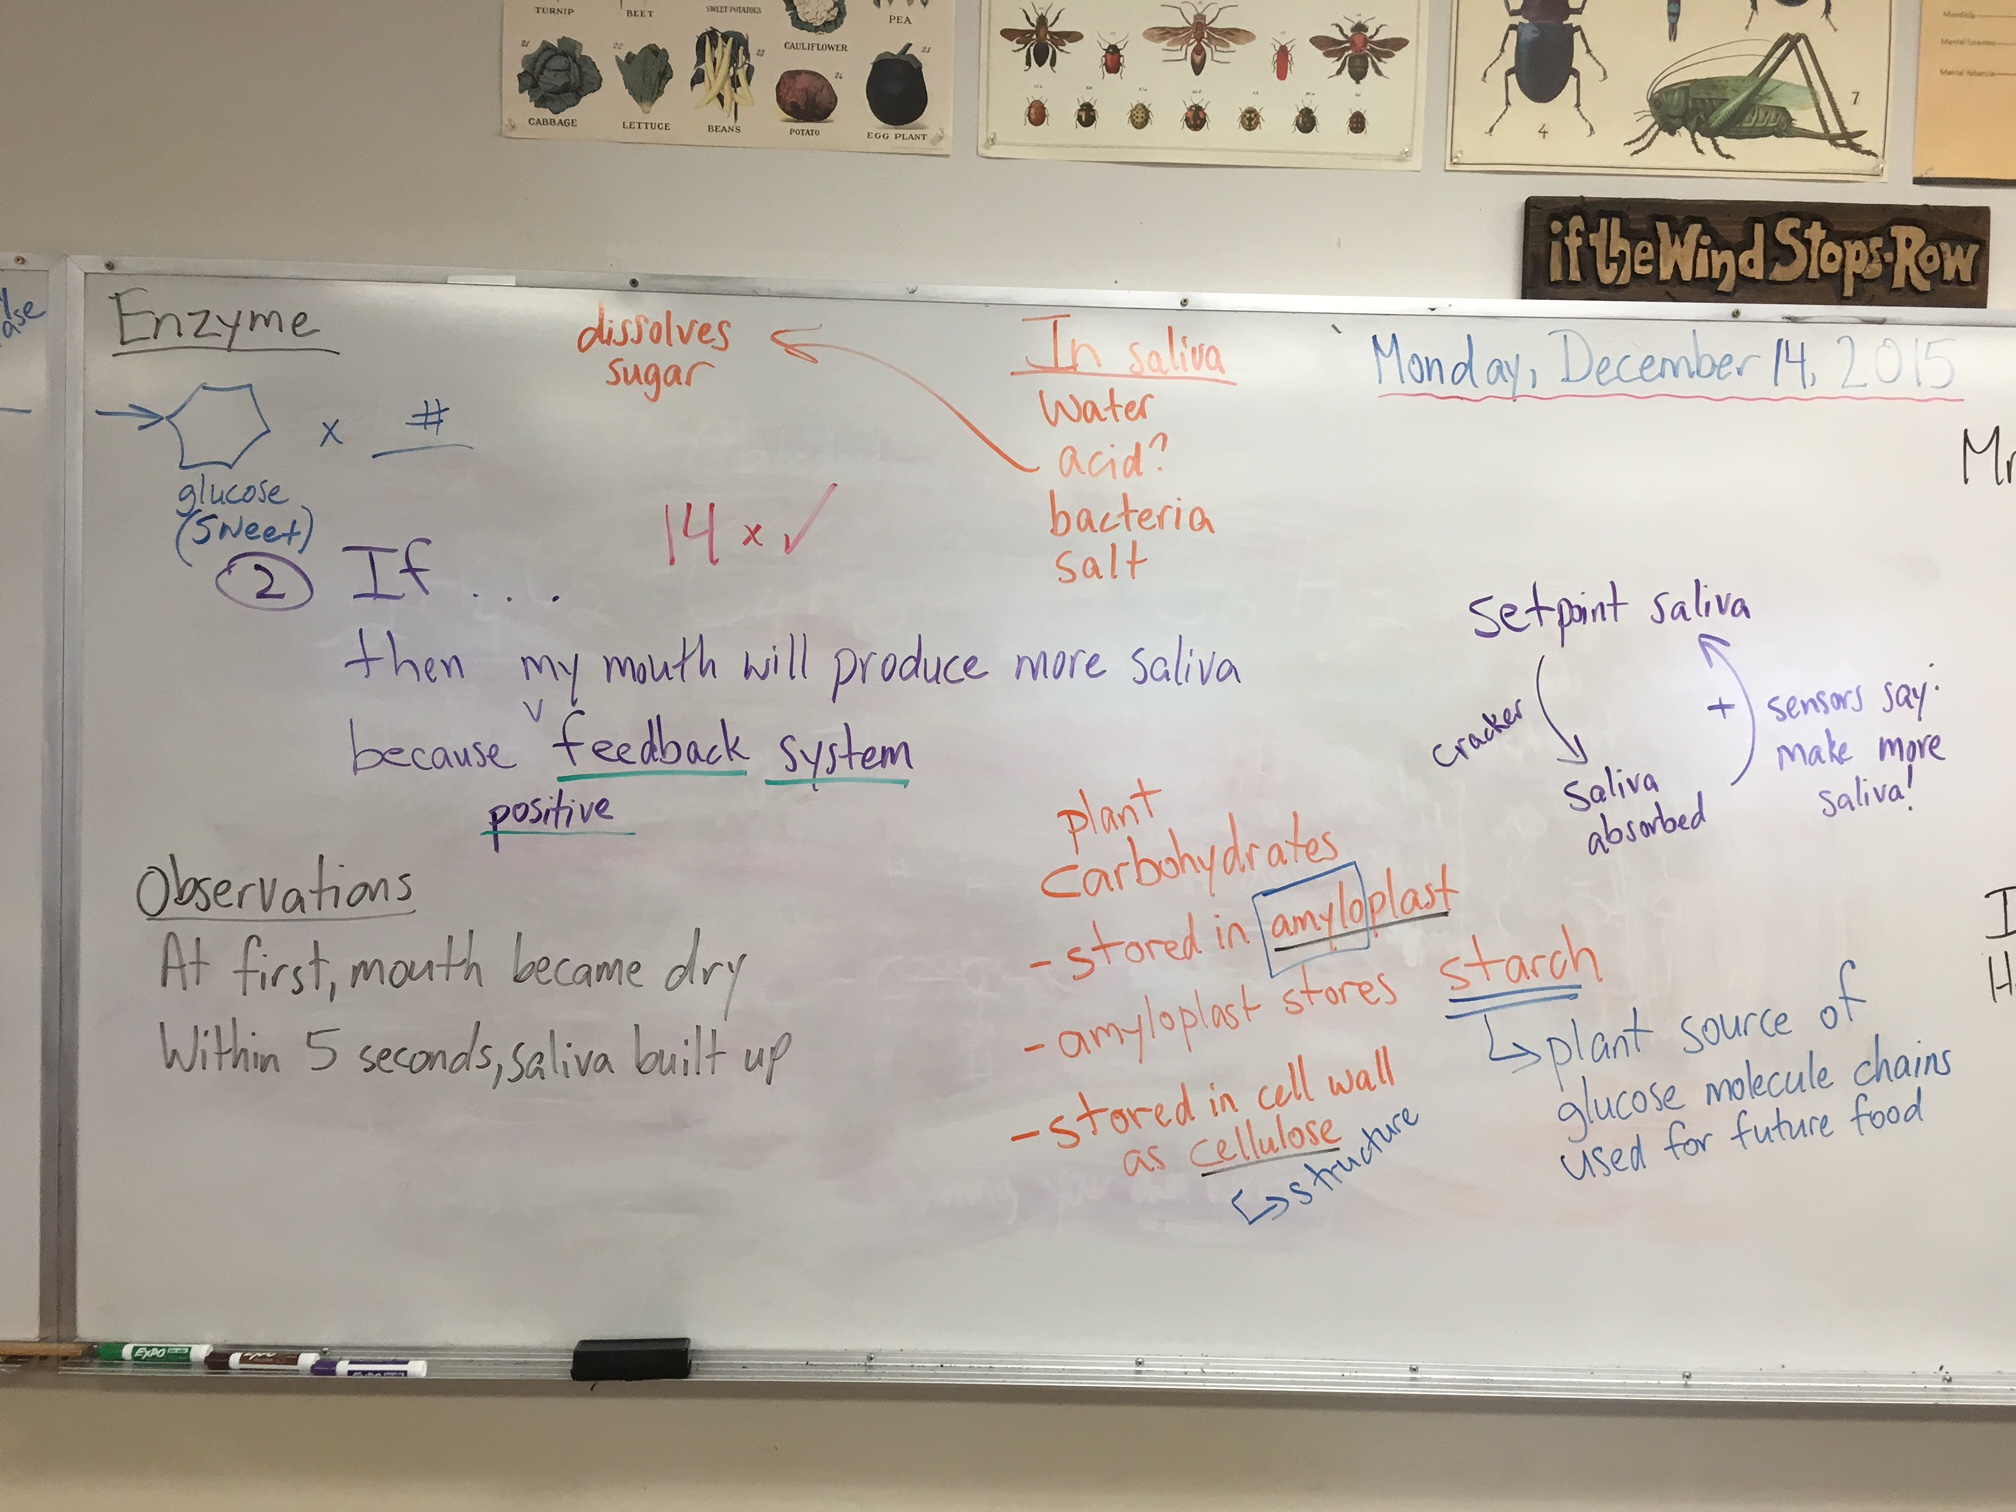 TURNIP
BEET
SWEET POTATOES
CAULIFLOWER
PEA
21
22
23
24
25
CABBAGE
LETTUCE
BEANS
POTATO
EGG PLANT
4
7
if the Wind Stops-Row
ase
Enzyme
x #
glucose
(sweet)
dissolves
sugar
In saliva
Water
acid?
bacteria
salt
Monday, December 14, 2015
14 x ✓
2 If ...
then my mouth will produce more saliva
because feedback system
v
positive
Observations
At first, mouth became dry
Within 5 seconds, saliva built up
setpoint saliva
cracker
Saliva
absorbed
+
sensors say:
make more
saliva!
plant
Carbohydrates
- stored in amyloplast
- amyloplast stores starch
- stored in cell wall
as cellulose
↳ structure
↳ plant source of
glucose molecule chains
used for future food
EXPO